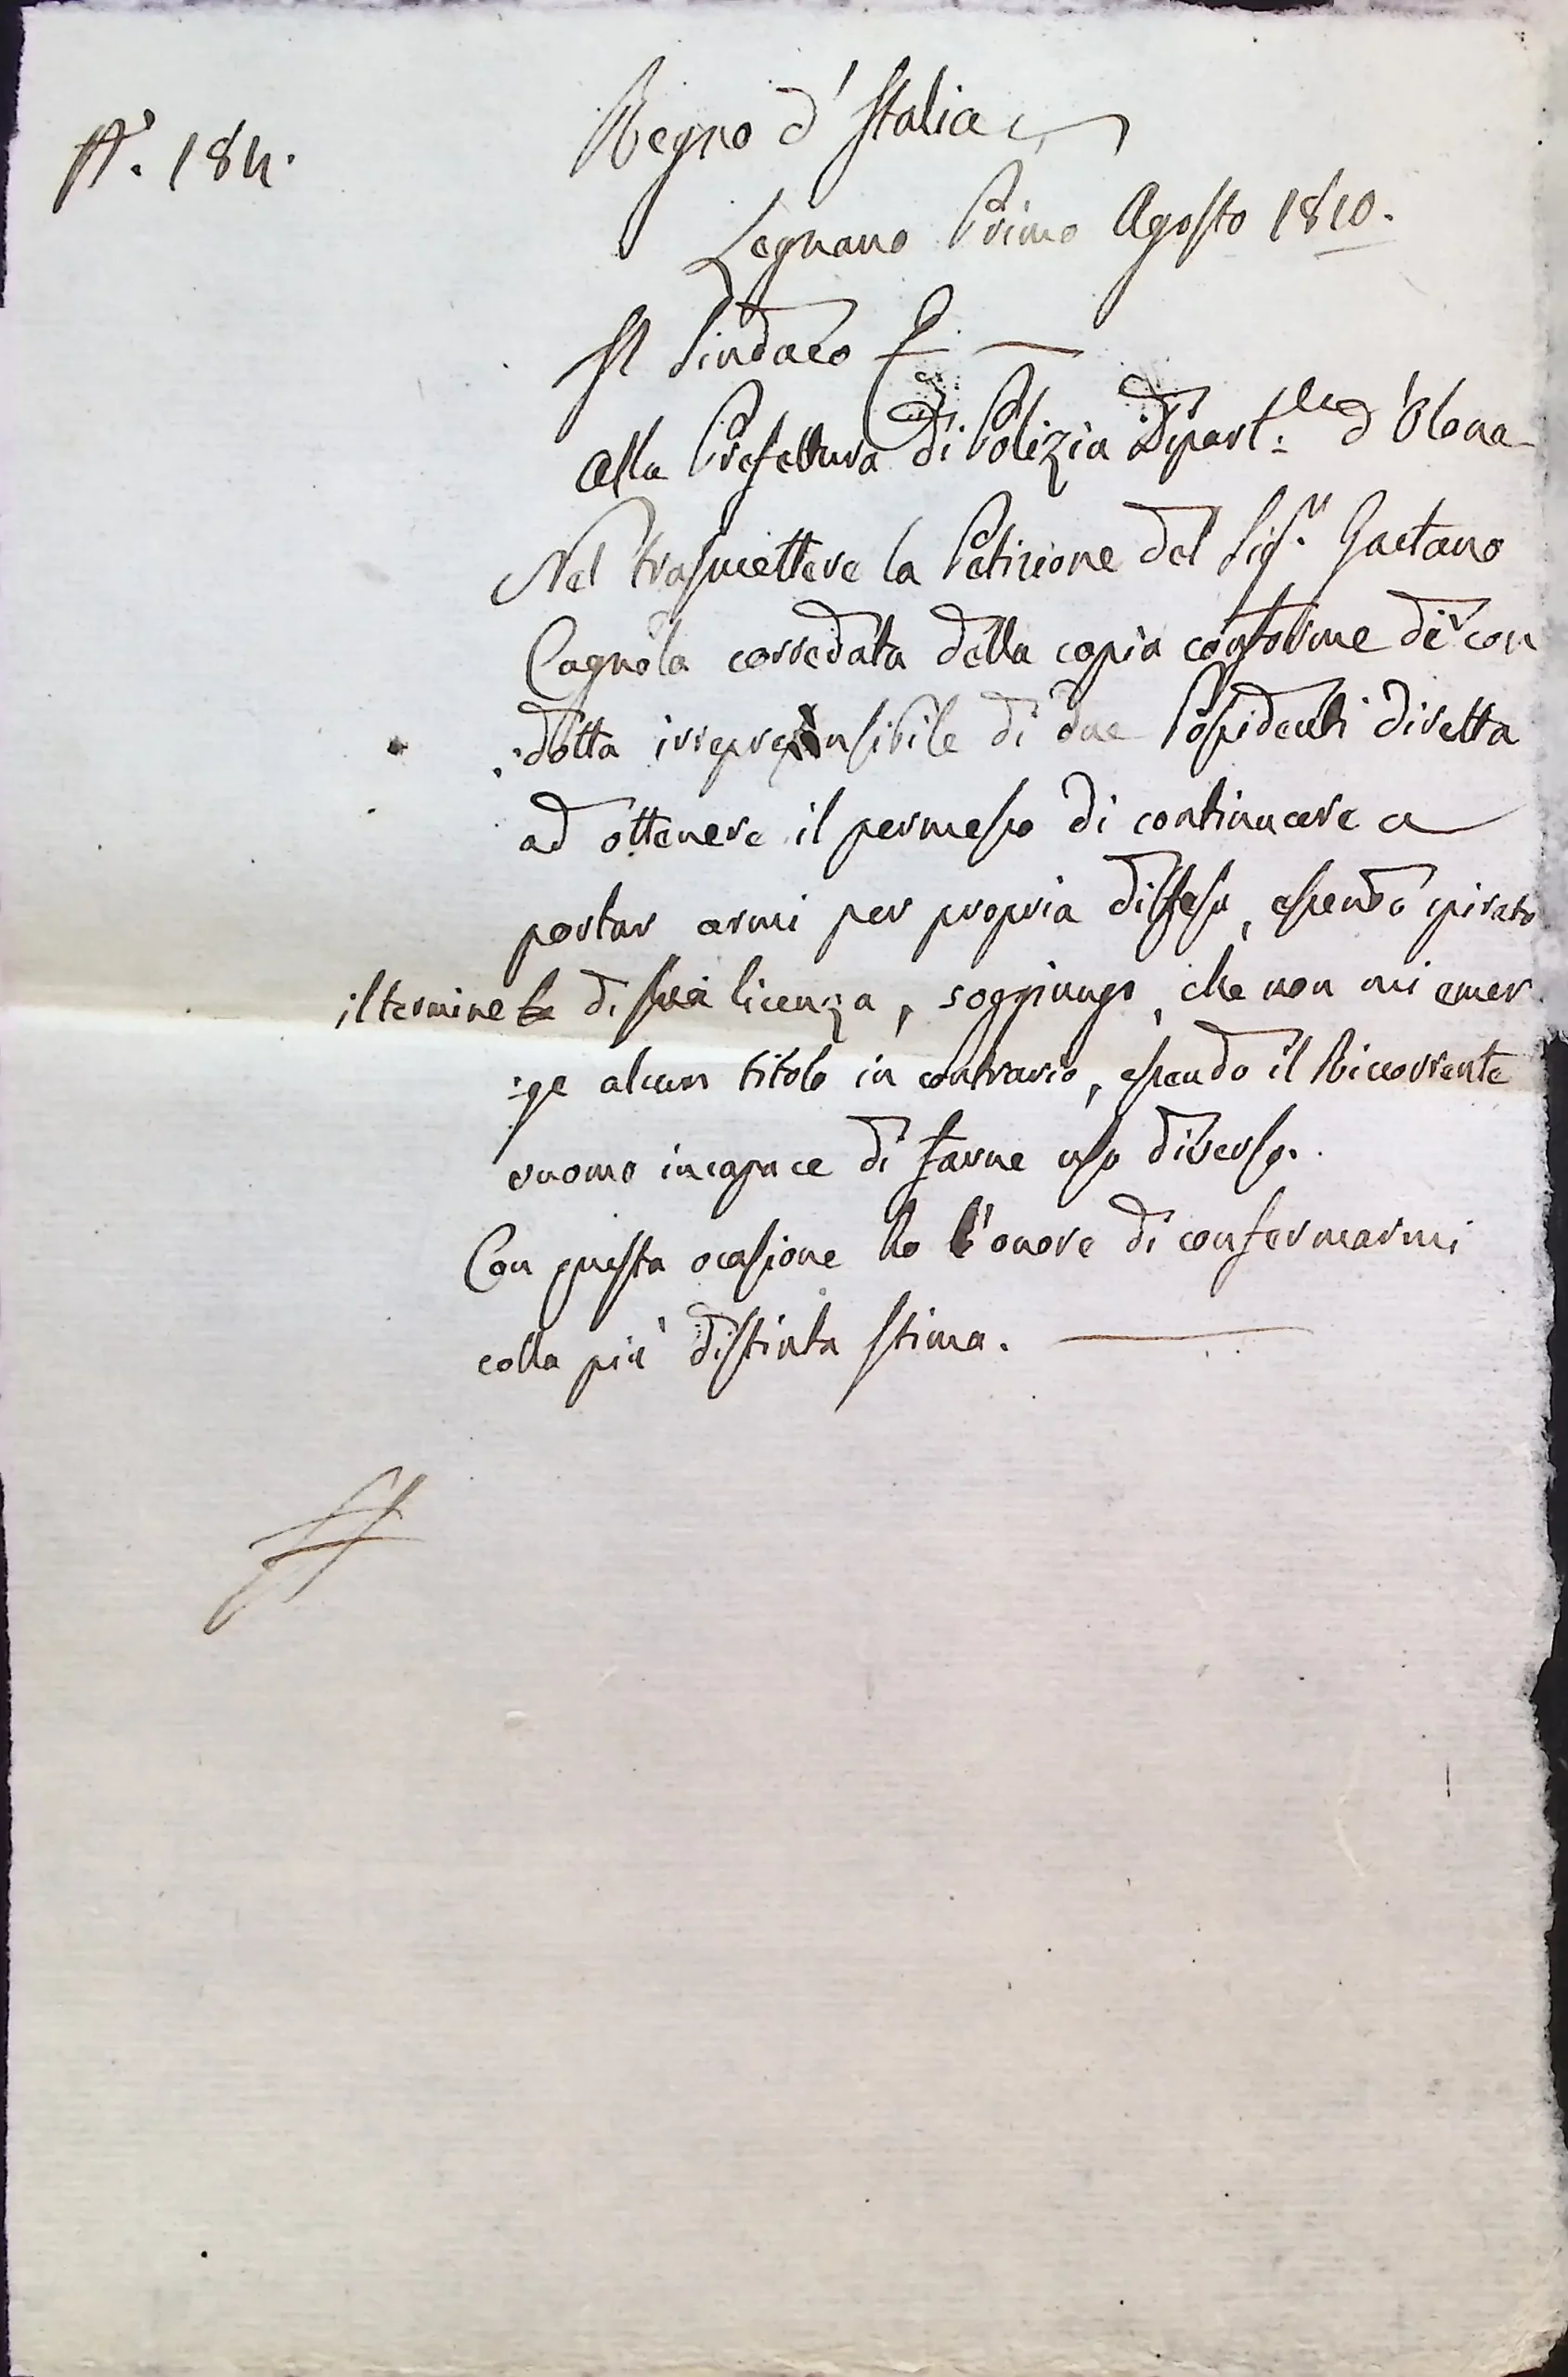 N.° 184.
Regno d'Italia
Legnano Primo Agosto 1810.
Il Sindaco
Alla Prefettura di Polizia Dipart.le d'Olona
Nel trasmettere la Petizione del Sig.r Gaetano
Cagnola corredata della copia conforme di con
:dotta irreprensibile di due Possidenti diretta
ad ottenere il permesso di continuare a
portar armi per propria diffesa, essendo spirato
il termine di sua licenza, soggiungo, che non mi emer
:ge alcun titolo in contrario, essendo il Ricorrente
uuomo incapace di farne uso diverso.
Con questa ocasione ho l'onore di confermarmi
colla più distinta stima.